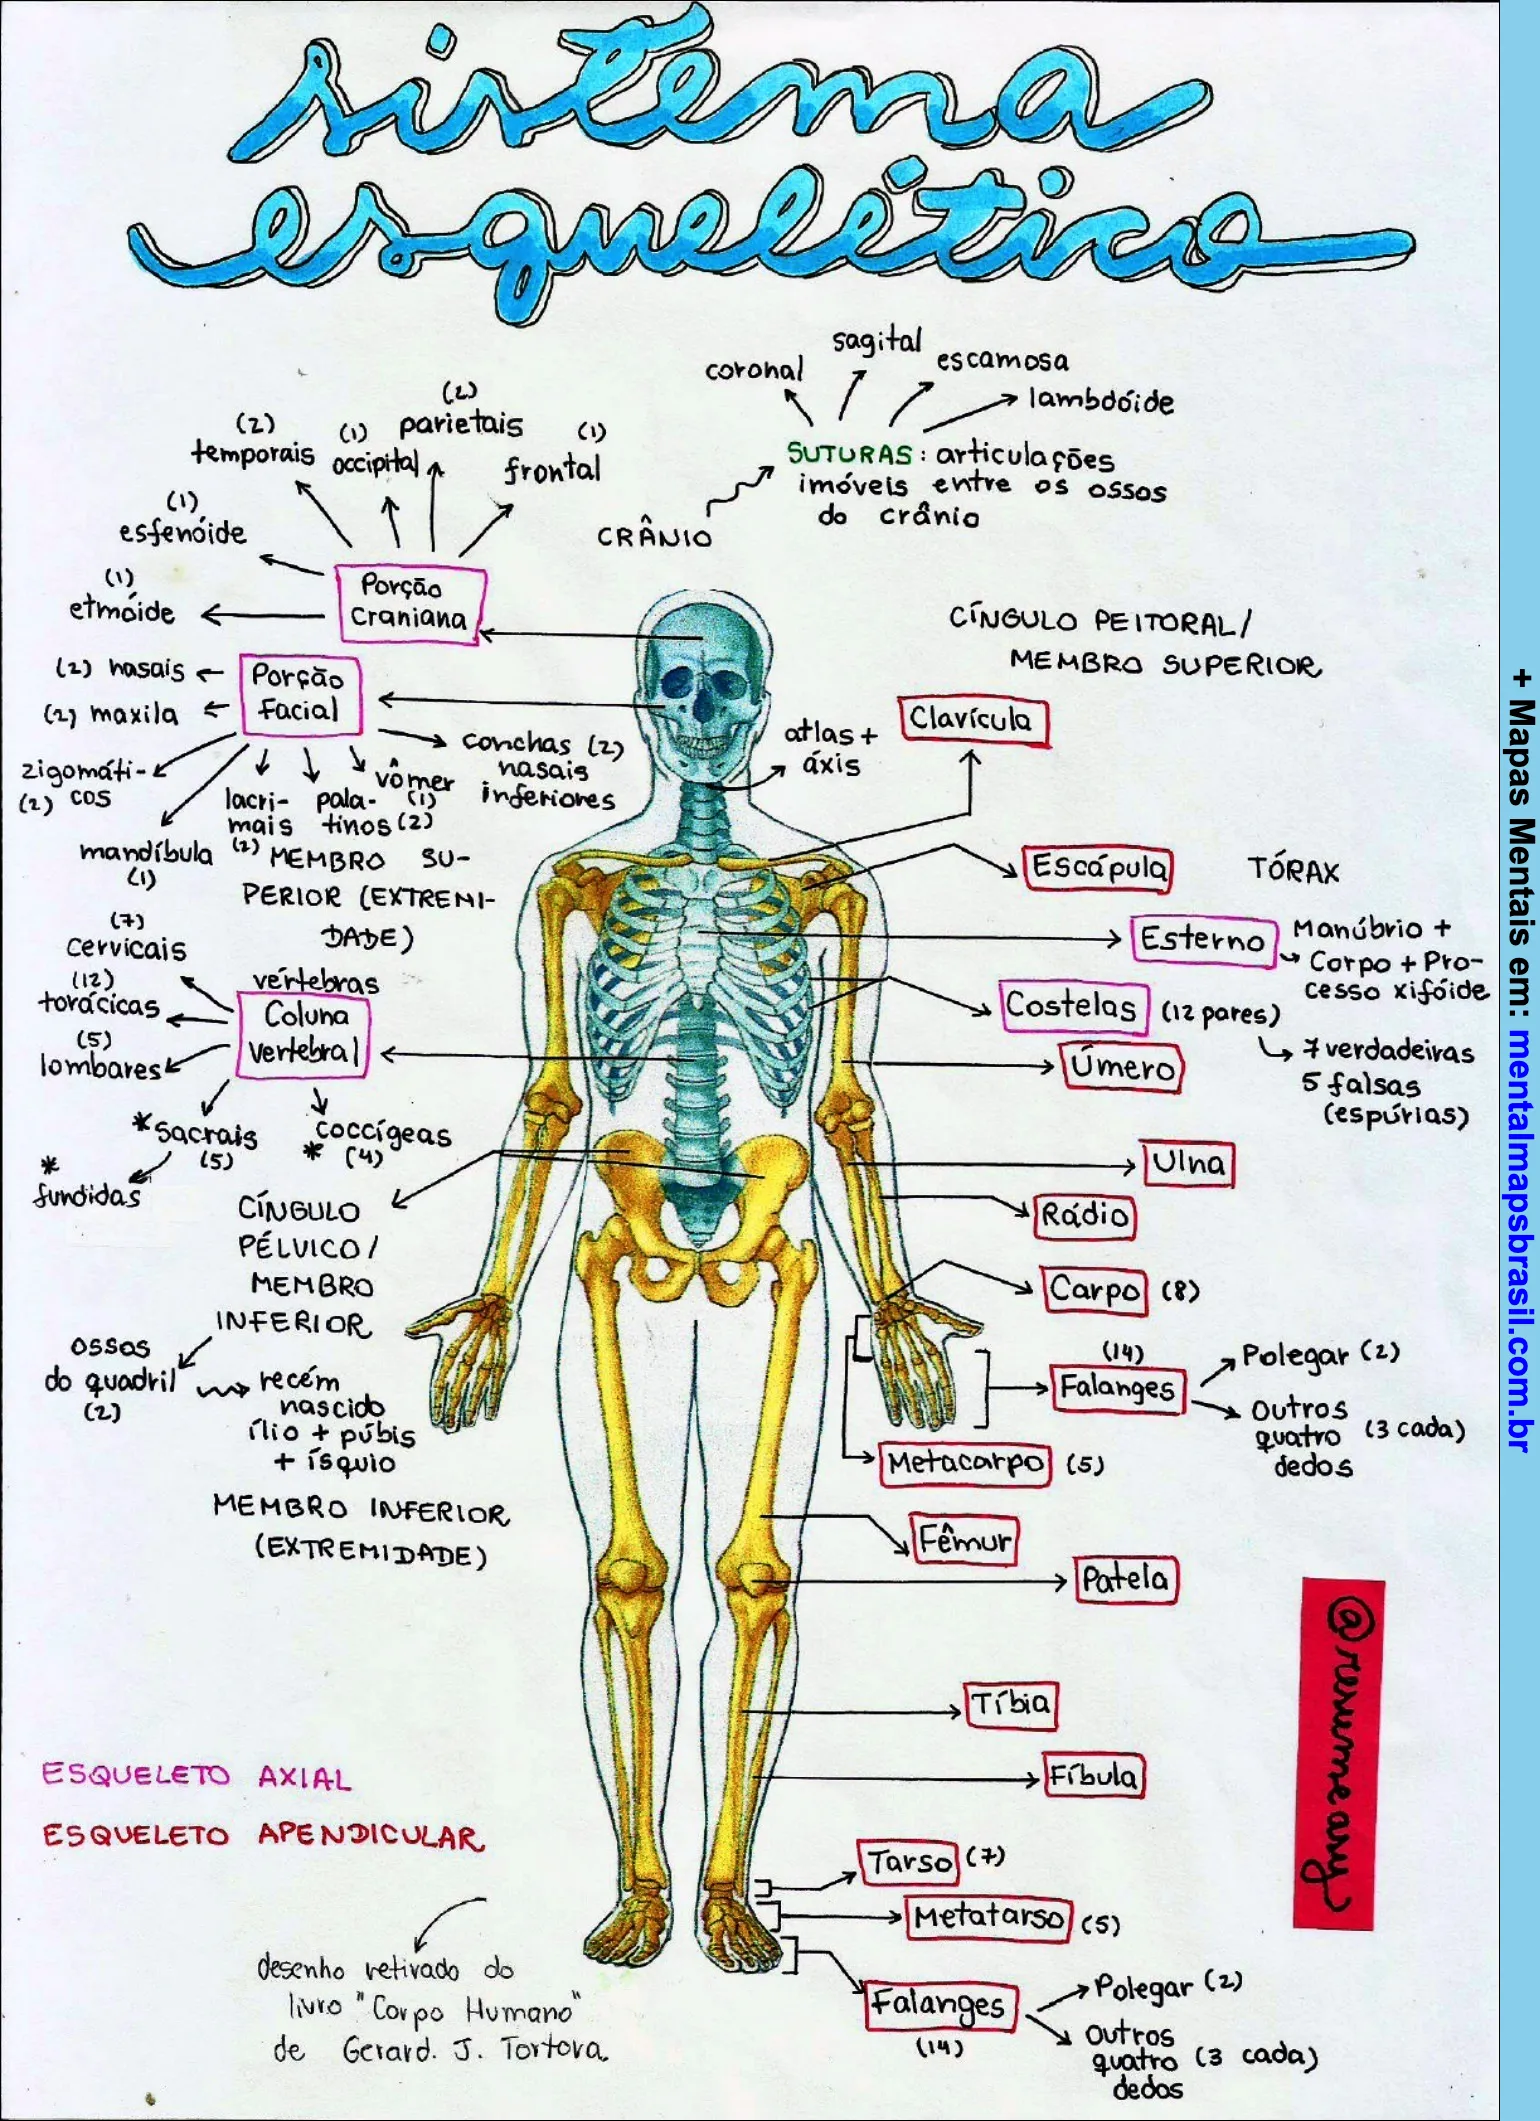 sistema
esquelético
coronal
sagital
escamosa
lambdóide
SUTURAS: articulações
imóveis entre os ossos
do crânio
CRÂNIO
(2)
temporais
(1)
occipital
(2)
parietais
(1)
frontal
(1)
esfenóide
(1)
etmóide
Porção
Craniana
(2) nasais
(2) maxila
zigomáti-
(2) cos
mandíbula
(1)
Porção
facial
lacri-
mais
(2)
pala-
tinos (2)
vômer
(1)
conchas (2)
nasais
inferiores
atlas +
áxis
CÍNGULO PEITORAL/
MEMBRO SUPERIOR
Clavícula
Escápula
TÓRAX
Esterno
Manúbrio +
Corpo + Pro-
cesso xifóide
Costelas (12 pares)
7 verdadeiras
5 falsas
(espúrias)
Úmero
Ulna
Rádio
Carpo (8)
(14)
Falanges
Polegar (2)
Outros
quatro (3 cada)
dedos
Metacarpo (5)
MEMBRO SU-
PERIOR (EXTREMI-
DADE)
(7)
cervicais
(12)
torácicas
(5)
lombares
vértebras
Coluna
Vertebral
*sacrais
(5)
*
fundidas
coccígeas
* (4)
CÍNGULO
PÉLVICO/
MEMBRO
INFERIOR
ossos
do quadril
(2)
recém
nascido
ílio + púbis
+ ísquio
MEMBRO INFERIOR
(EXTREMIDADE)
Fêmur
Patela
Tíbia
Fíbula
Tarso (7)
Metatarso (5)
Falanges
(14)
Polegar (2)
Outros
quatro (3 cada)
dedos
ESQUELETO AXIAL
ESQUELETO APENDICULAR
desenho retirado do
livro "Corpo Humano"
de Gerard. J. Tortora.
@resumeany
+ Mapas Mentais em: mentalmapsbrasil.com.br